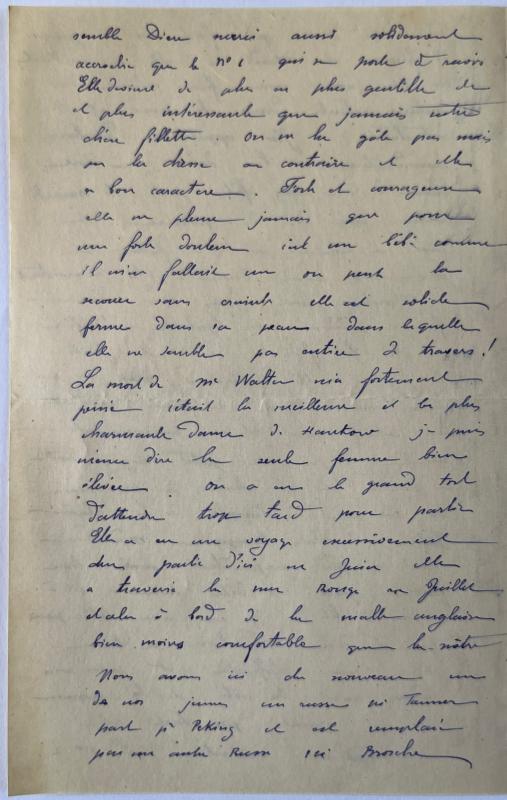 semble Dieu merci aussi solidement
accroché que le n° 1 qui se porte à ravir
Elle devient de plus en plus gentille
et plus intéressante que jamais notre
chère fillette. On ne la gâte pas mais
on la dresse au contraire et elle
a bon caractère. Forte et courageuse
elle ne pleure jamais que pour
une forte douleur c'est un bébé comme
il m'en fallait un on peut la
secouer sans crainte elle est solide
ferme dans sa peau dans laquelle
elle ne semble pas entrée de travers!
La mort de Me Walter m'a fortement
peiné c'était la meilleure et la plus
charmante Dame de Hankow je puis
même dire la seule femme bien
élevée. On a eu le grand tort
d'attendre trop tard pour partir
Elle a eu un voyage excessivement
dur partie d'ici en Juin elle
a traversé la mer Rouge en Juillet
et cela à bord de la malle anglaise
bien moins comfortable que la nôtre
Nous avons ici du nouveau un
de nos jeunes un russe Mr
part pr Peking et est remplacé
par un autre Russe Mr